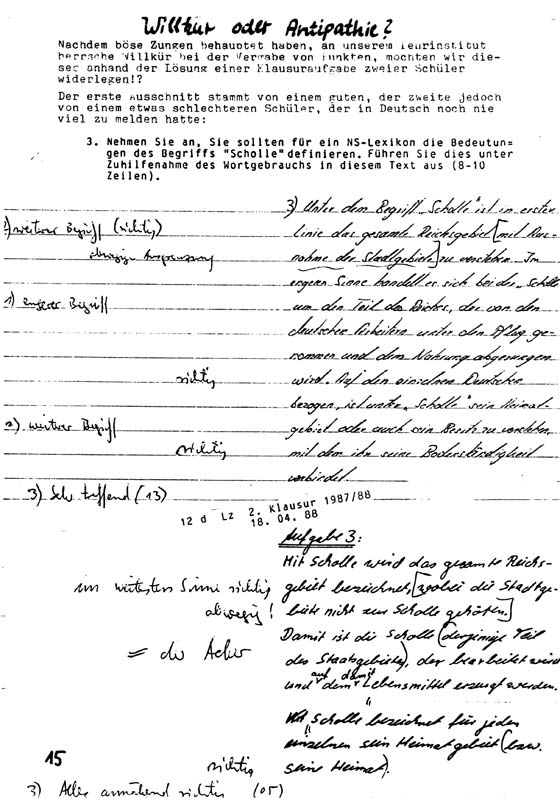 Willkür oder Antipathie?
Nachdem böse Zungen behauptet haben, an unserem Lehrinstitut
herrsche Willkür bei der Vergabe von Punkten, möchten wir die-
ses anhand der Lösung einer Klausuraufgabe zweier Schüler
widerlegen!?
Der erste Ausschnitt stammt von einem guten, der zweite jedoch
von einem etwas schlechteren Schüler, der in Deutsch noch nie
viel zu melden hatte:
3. Nehmen Sie an, Sie sollten für ein NS-Lexikon die Bedeutun=
gen des Begriffs "Scholle" definieren. Führen Sie dies unter
Zuhilfenahme des Wortgebrauchs in diesem Text aus (8-10
Zeilen).
3) Unter dem Begriff "Scholle" ist in erster
weiterer Begriff (richtig) Linie das gesamte Reichsgebiet [mit Aus-
abwegige nahme der Stadtgebiete] zu verstehen. Im
engeren Sinne handelt es sich bei der Scholle
1) engerer Begriff um den Teil des Reichs, der von den
deutschen Arbeitern unter den Pflug ge-
nommen und dem Nahrung abgerungen
richtig wird. Auf den einzelnen Deutschen
bezogen, ist unter "Scholle" sein Heimat-
2) weiterer Begriff gebiet oder auch sein Besitz zu verstehen
richtig mit dem ihn seine Bodenständigkeit
verbindet.
3) Sehr treffend (13)
12 d Lz 2. Klausur 1987/88
18. 04. 88
Aufgabe 3:
Mit Scholle wird das gesamte Reichs-
im weitesten Sinne richtig gebiet bezeichnet, [wobei die Stadtge-
abwegig! biete nicht zur Scholle gehören.]
Damit ist die Scholle (derjenige Teil
= der Acker des Staatsgebietes), der bearbeitet wird
und auf dem damit Lebensmittel erzeugt werden.
Mit "Scholle" bezeichnet für jeden
einzelnen sein Heimatgebiet (bzw.
15 richtig seine Heimat).
3) Alles annähernd richtig (05)